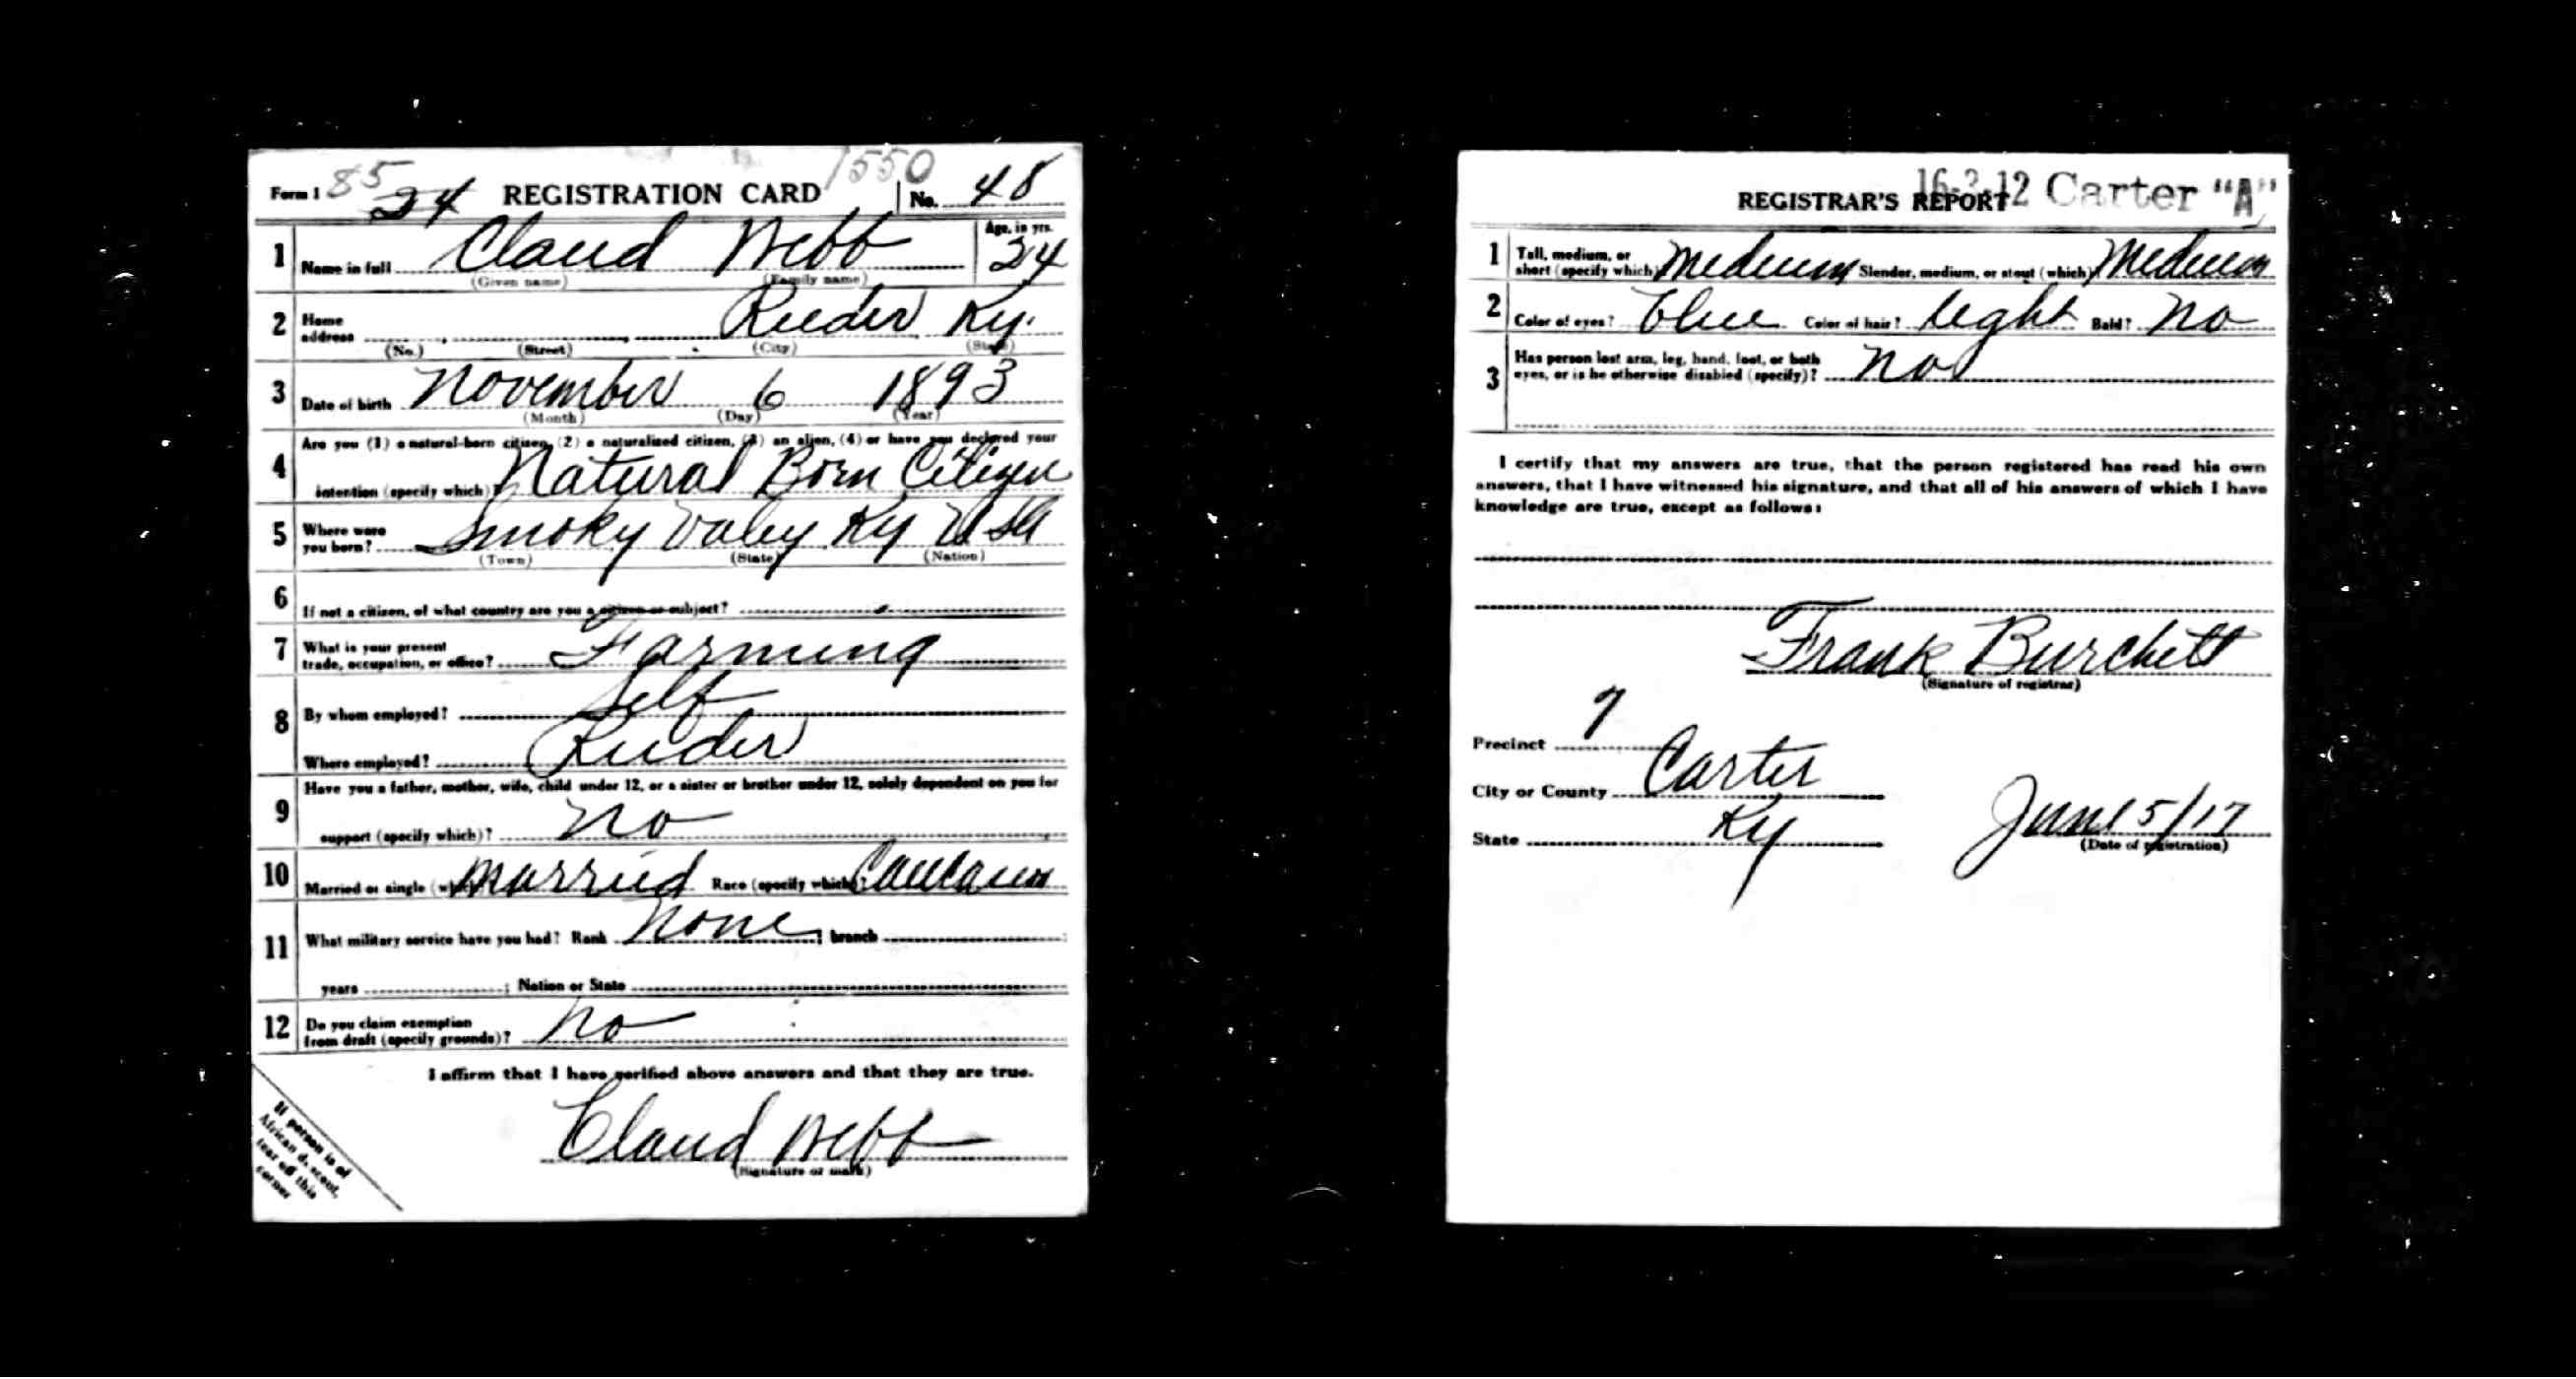 Form 1 85 24 REGISTRATION CARD 1550 No. 48
1 Name in full Claud Webb Age, in yrs. 24
(Given name) (Family name)
2 Home address Reeder Ky.
(No.) (Street) (City) (State)
3 Date of birth November 6 1893
(Month) (Day) (Year)
4 Are you (1) a natural-born citizen, (2) a naturalized citizen, (3) an alien, (4) or have you declared your
intention (specify which)? Natural Born Citizen
5 Where were you born? Smoky Valey Ky USA
(Town) (State) (Nation)
6 If not a citizen, of what country are you a citizen or subject?
7 What is your present trade, occupation, or office? Farming
8 By whom employed? Self
Where employed? Reeder
9 Have you a father, mother, wife, child under 12, or a sister or brother under 12, solely dependent on you for
support (specify which)? No
10 Married or single (which)? Married Race (specify which)?
11 What military service have you had? Rank None ; branch ;
years ; Nation or State
12 Do you claim exemption from draft (specify grounds)? No
I affirm that I have verified above answers and that they are true.
Claud Webb
(Signature or mark)
If person is of
African descent,
tear off this
corner
16-3-12 Carter "A"
REGISTRAR'S REPORT
1 Tall, medium, or short (specify which)? Medium Slender, medium, or stout (which)? Medium
2 Color of eyes? Blue Color of hair? Light Bald? No
3 Has person lost arm, leg, hand, foot, or both
eyes, or is he otherwise disabled (specify)? No
I certify that my answers are true, that the person registered has read his own
answers, that I have witnessed his signature, and that all of his answers of which I have
knowledge are true, except as follows:
Frank Burchett
(Signature of registrar)
Precinct 7
City or County Carter
State Ky June 5/17
(Date of registration)